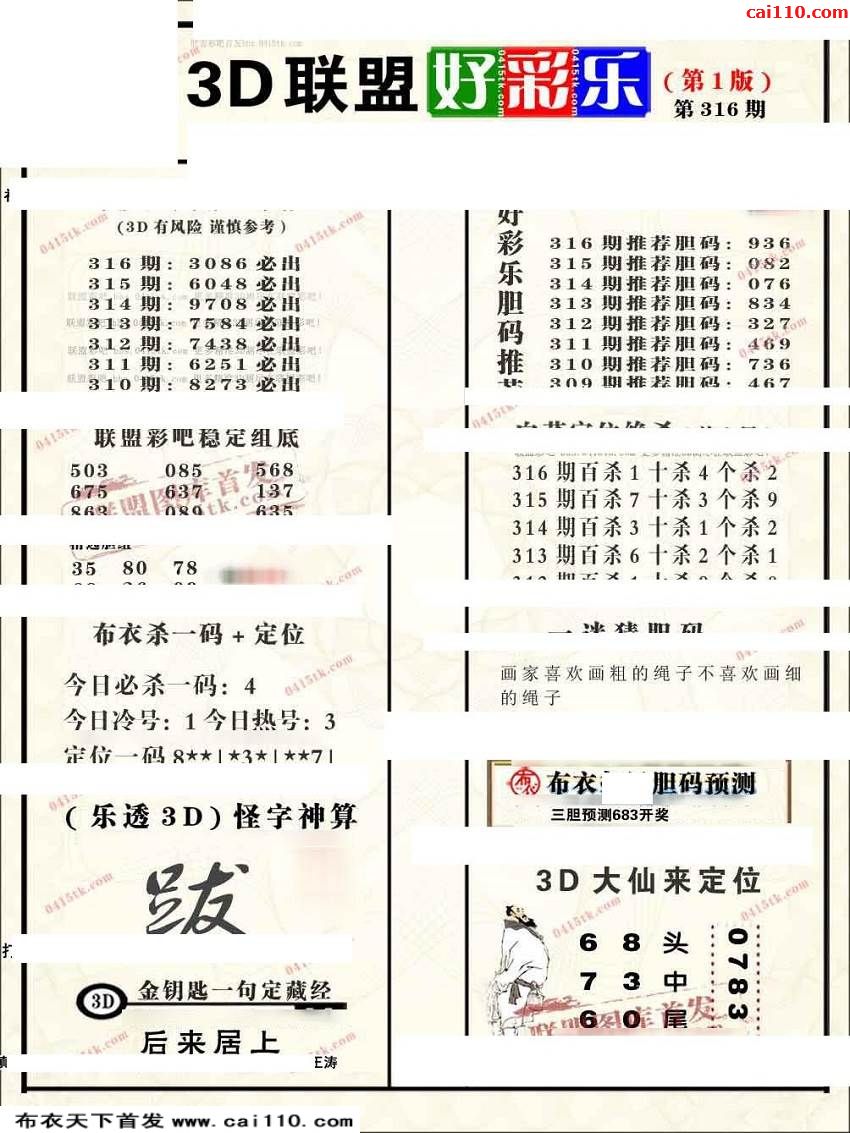 cai110.com
3D联盟好彩乐
(第1版)
第316期
(3D有风险 谨慎参考)
316期: 3086必出
315期: 6048必出
314期: 9708必出
313期: 7584必出
312期: 7438必出
311期: 6251必出
310期: 8273必出
联盟彩吧稳定组底
503 085 568
675 637 137
863 089 635
35 80 78
布衣杀一码+定位
今日必杀一码: 4
今日冷号: 1 今日热号: 3
定位一码 8**|*3*|**7|
(乐透3D) 怪字神算
跋
3D 金钥匙一句定藏经
后来居上
王涛
好彩乐胆码推荐
316期推荐胆码: 936
315期推荐胆码: 082
314期推荐胆码: 076
313期推荐胆码: 834
312期推荐胆码: 327
311期推荐胆码: 469
310期推荐胆码: 736
309期推荐胆码: 467
316期百杀1十杀4个杀2
315期百杀7十杀3个杀9
314期百杀3十杀1个杀2
313期百杀6十杀2个杀1
一谜猜胆码
画家喜欢画粗的绳子不喜欢画细
的绳子
布衣 胆码预测
三胆预测683开奖
3D大仙来定位
6 8 头
7 3 中
6 0 尾
0783
联盟图库首发
0415tk.com
布衣天下首发 www.cai110.com